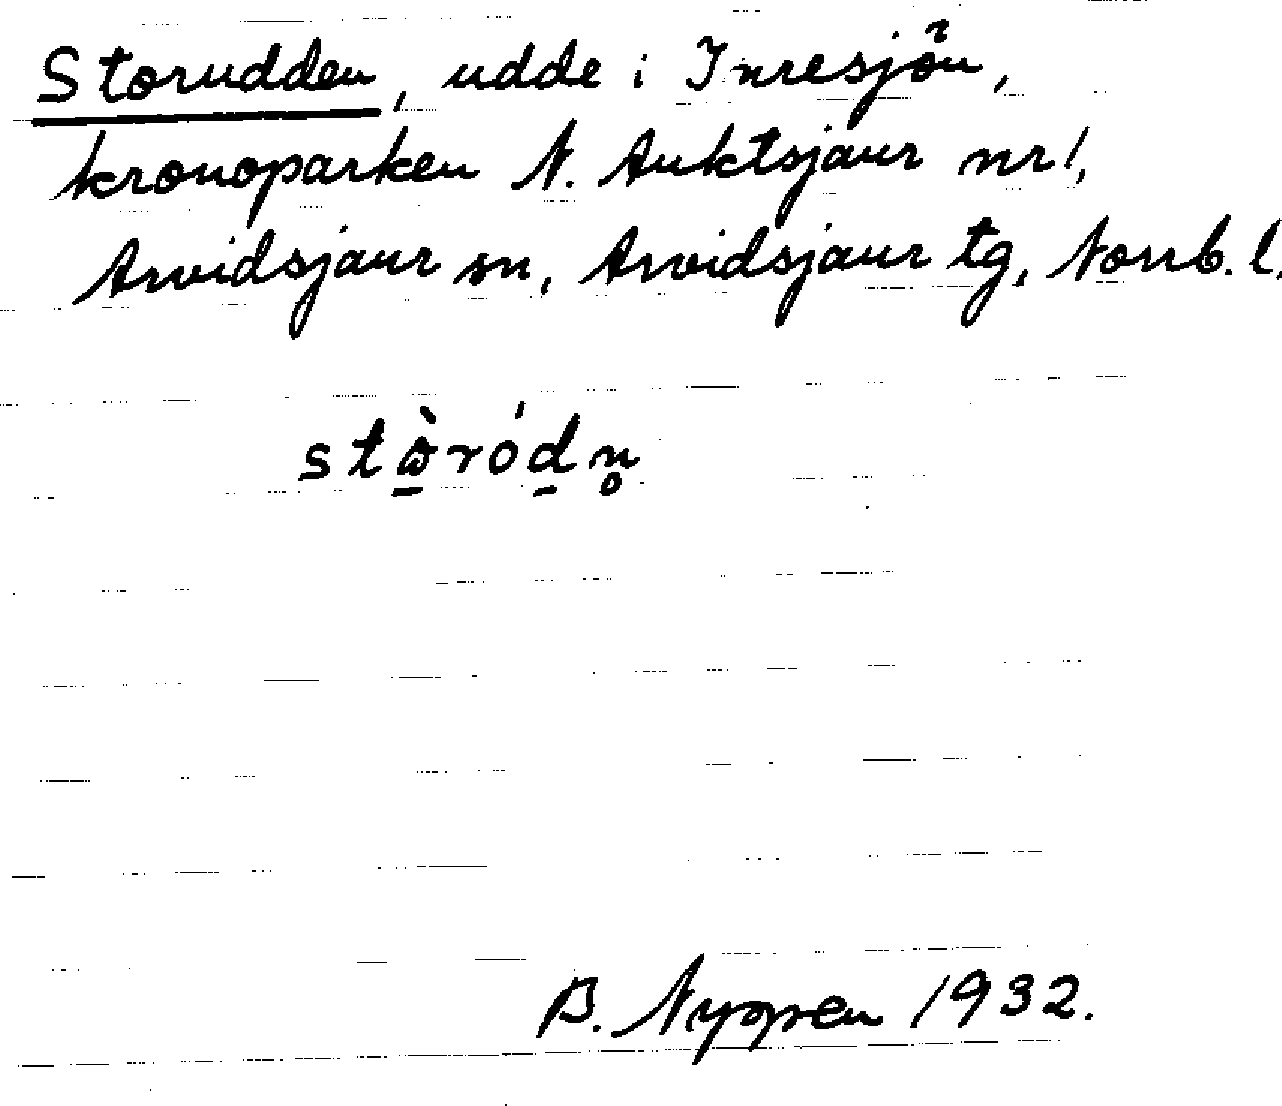 Storudden, udde i Inresjön,
kronoparken N. Auktsjaur nr 1,
Arvidsjaur sn, Arvidsjaur tg, Norrb. l.
stὼ̱róḏn̥
B. Nygren 1932.